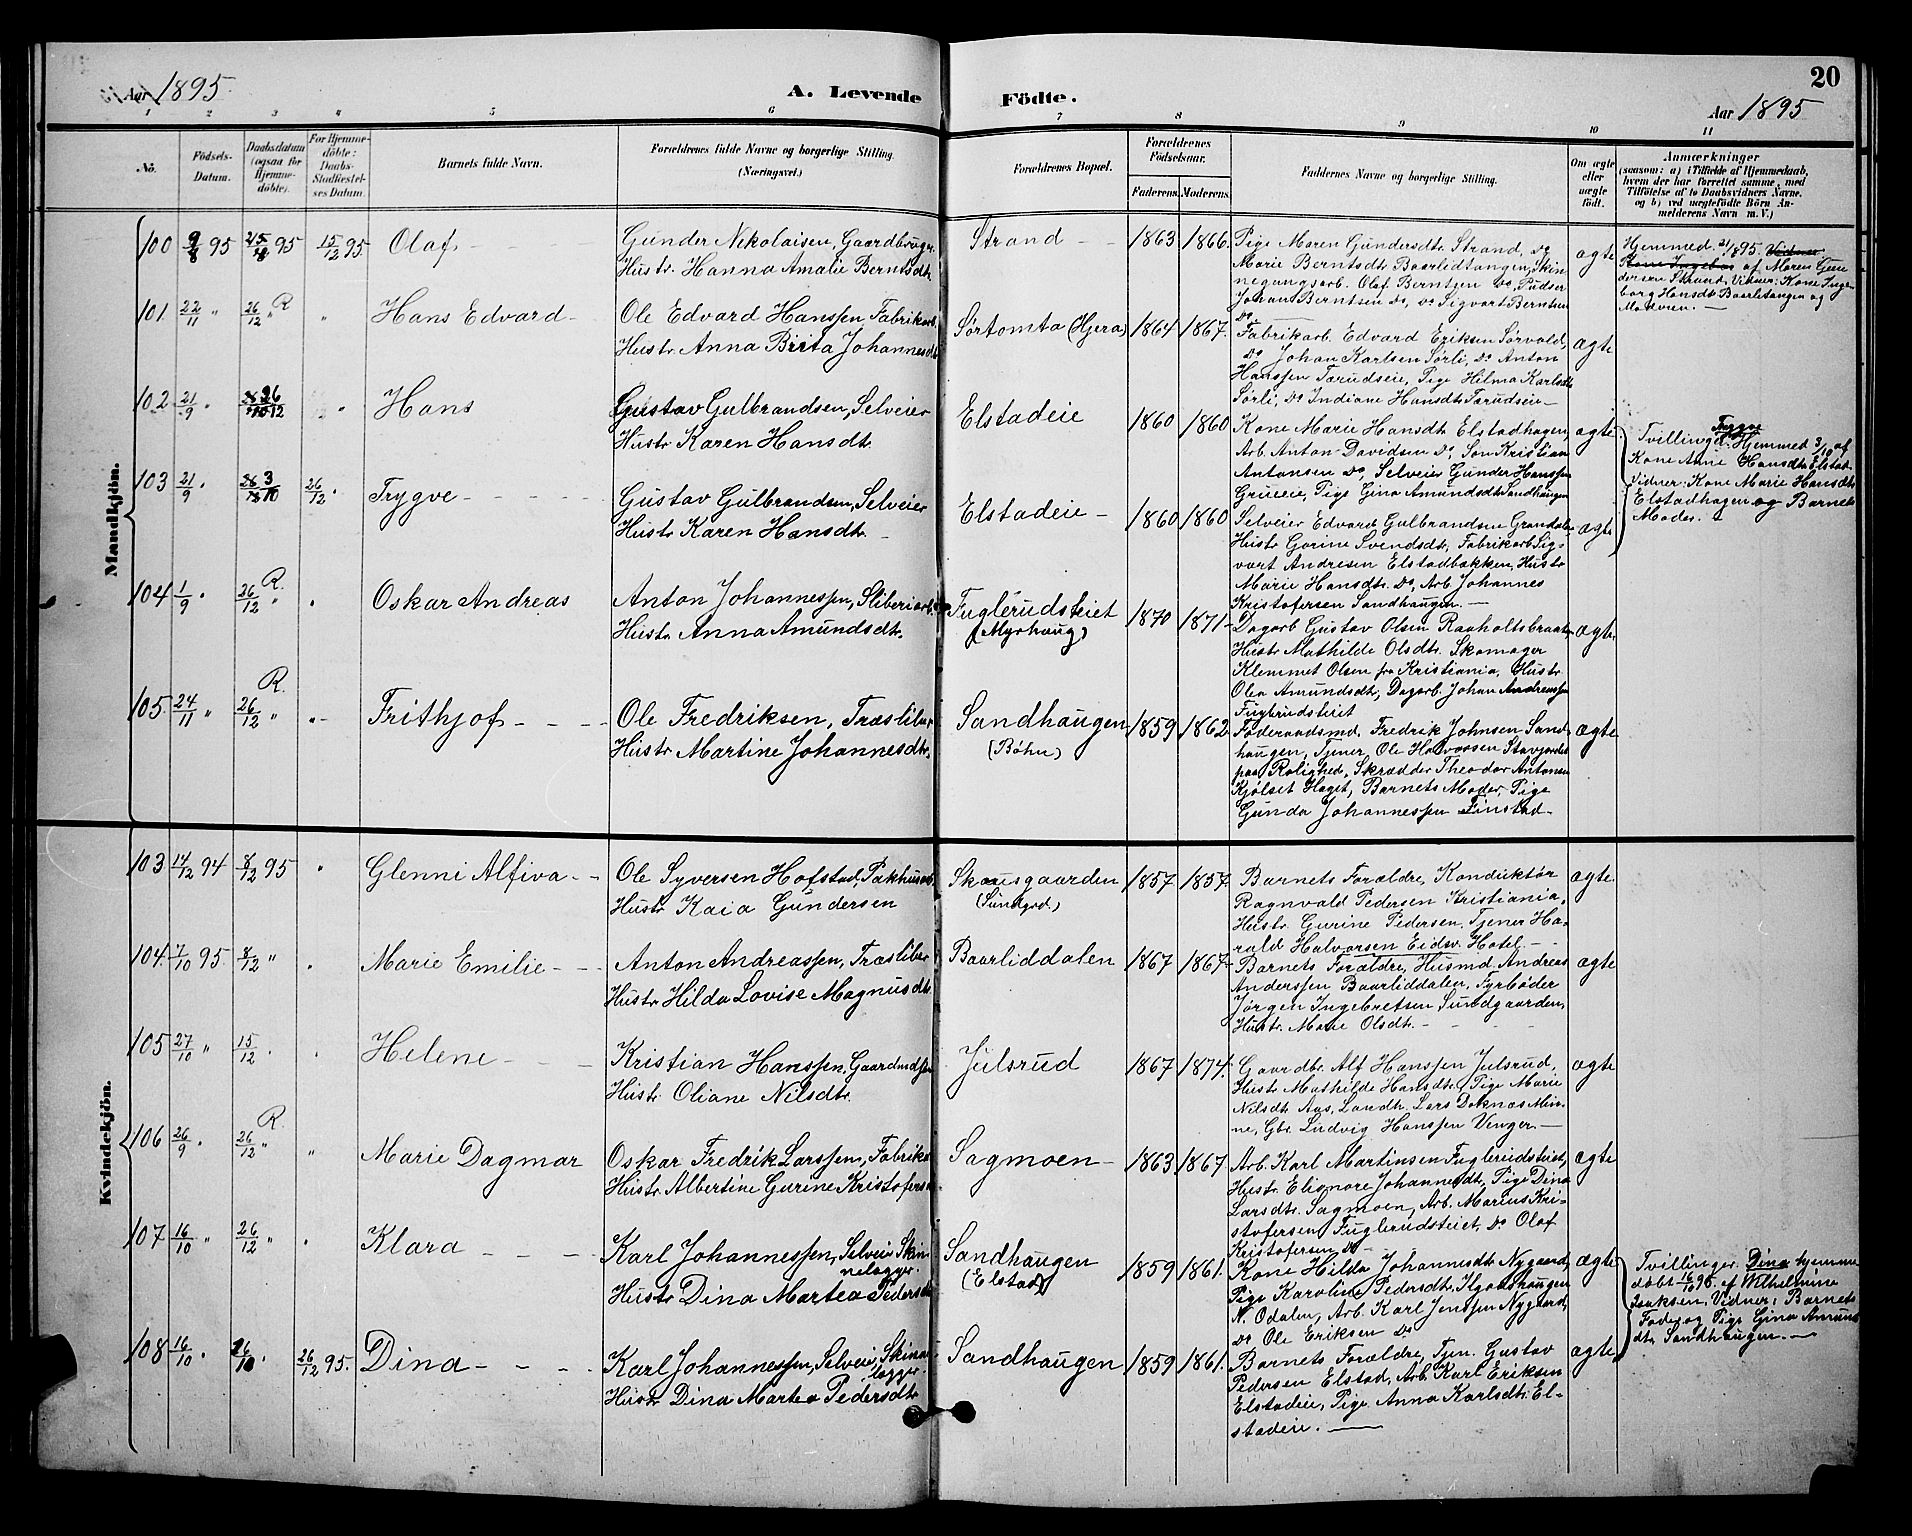 Aar 1895.
A. Levende Födte.
20
Aar 1895
1 2 3 4 5 6 7 8 9 10 11
No.
Födsels-Datum.
Daabsdatum (ogsaa for Hjemmedöbte).
For Hjemmedöbte: Daabs-Stadfæstelses Datum.
Barnets fulde Navn.
Forældrenes fulde Navne og borgerlige Stilling. (Næringsvei.)
Forældrenes Bopæl.
Forældrenes Födselsaar.
Faderens. Moderens.
Faddernes Navne og borgerlige Stilling.
Om ægte eller uægte födt.
Anmærkninger
(saasom: a) i Tilfælde af Hjemmedaab, hvem der har forrettet samme, med Tilföielse af to Daabsvidners Navne, og b) ved uægtefödte Börn Anmelderens Navn m. V.)
Mandkjön.
100 9/8 95 25/8 95 15/12 95. Olaf
Gunder Nikolaisen, Gaardbruger
Hustr. Hanna Amalie Berntsdt.
Strand 1863 1866.
Pige Maren Gundersdtr. Strand, Do
Marie Berntsdt. Baarlidtangen, Skin
negangsarb. Olaf Berntsen Do, Pudser
Johan Berntsen Do, Do Sigvart Berntsen
Do
ægte
Hjemmed. 21/8 95.
af Maren Gun
dersen Strand, Vidner: Kone Inge
borg Hansdt. Baarlitangen og
Moderen.
101. 22/11 " 26/12 " R " Hans Edvard
Ole Edvard Hanssen Fabrikarb.
Hustr. Anna Birta Johannesdt
Sørtomta (Hjera) 1864 1867.
Fabrikarb. Edvard Eriksen Sørvold,
Do Johan Karlsen Sørli, Do Anton
Hanssen Tærudseie, Pige Hilma Karlsdt
Sørli, Do Indiane Hansdt. Tærudseie
ægte
102. 21/9 " 26/12 " Hans
Gustav Gulbrandsen, Selveier
Hustr. Karen Hansdt.
Elstadeie 1860 1860
Kone Marie Hansdt. Elstadhagen,
Arb. Anton Davidsen Do, Søn Kristian
Antonsen Do, Selveier Gunder Hanssen
Grueeie, Pige Gina Amundsdt. Sandhaugen
ægte
Tvillinger. Trygve Hjemmed 3/10 af
Kone Anne Hansdt. Elstad
Vidner: Kone Marie Hansdt.
Elstadhagen og Barnets
Moder.
103 21/9 " 3/10 26/12 " Trygve
Gustav Gulbrandsen, Selveier
Hustr. Karen Hansdtr.
Elstadeie 1860 1860
Selveier Edvard Gulbrandsen Grandalen
Hustr. Gorine Svendsdt., Fabrikarb Sig-
vart Andresen Elstadbakken, Hustr
Marie Hansdtr. Do, Arb. Johannes
Kristofersen Sandhaugen.
ægte
104 1/9 " 26/12 " R. " Oskar Andreas
Anton Johannessen, Sliberiarb.
Hustr. Anna Amundsdt.
Fuglerudsteiet
(Myrhaug)
1870 1871
Dagarb Gustav Olsen Raaholtsbraaten
Hustr. Mathilde Olsdt. Skomager
Klemmet Olsen fra Kristiania, Hustr
Olea Amundsdt, Dagarb. Johan Andreassen
Fuglerudsteiet
ægte
105. 24/11 " 26/12 " R. " Frithjof
Ole Fredriksen, Træsliber
Hustr Martine Johannesdtr.
Sandhaugen
(Bøhn)
1859 1862
Føderaadsmd. Fredrik Johnsen Sand
haugen, Tjener Ole Halvorsen
paa Rolighed, Skrædder Theodor Antonsen
Kjølset Haget, Barnets Moder, Pige
Gunda Johannessen Finstad
ægte
Kvindekjön.
103 14/12 94 8/12 95 " Glenni Alfiva
Ole Syversen Hofstad, Pakhusarb.
Hustr. Kaia Gundersen
Skousgaarden
(Sundgrd.)
1857 1857
Barnets Forældre, Konduktør
Ragnvald Pedersen Kristiania,
Hustr. Gurine Pedersen, Tjener Ha-
rald Halvorsen Eidsv. Hotel
ægte.
104. 7/10 95. 8/12 " " Marie Emilie
Anton Andreassen, Træsliber
Hustr Hilda Lovise Magnusdt.
Baarliddalen 1867 1867
Barnets Forældre, Husmd. Andreas
Anderssen Baarliddalen, Fyrbøder
Jørgen Ingebretsen Sundgaarden,
Hustr. Marie Olsdt.
ægte
105 27/10 " 15/12 " " Helene
Kristian Hanssen, Gaardmdssøn
Hustr. Oliane Nilsdtr.
Julsrud 1867 1874.
Gaardbr. Alf Hanssen Julsrud,
Hustr Mathilde Hansdtr. Pige Marie
Nilsdt. Aas, Landh. Lars Doknæs Min-
ne, Gbr. Ludvig Hanssen Venger
ægte
106 26/9 " 26/12 " R. " Marie Dagmar
Oskar Fredrik Larssen, Fabrika
Hustr. Albertine Gurine Kristofersen
Sagmoen 1863 1867
Arb. Karl Martinsen Fuglerudsteiet,
Hustr. Elionore Johannesdt, Pige Dina
Larsdtr. Sagmoen, Arb. Marius Kri-
stofersen Fuglerudsteiet, Do Olaf
Kristofersen Do
ægte
107 16/10 " 26/12 " " Klara
Karl Johannessen, Selveier Skin
nelægger.
Hustr Dina Martea Pedersdt
Sandhaugen
(Elstad)
1859 1861.
Kone Hilda Johannesdtr. Nygaard,
Pige Karoline Pedersdt.
N. Odalen, Arb. Karl Jenssen Nygaard,
Do Ole Eriksen Do
ægte
Tvillinger. Dina hjemme
døbt 16/10 95. af Wilhelmine
Isaksen, Vidner: Barnets
Fader og Pige Gina Amund
dtr. Sandhaugen.
108 16/10 " 16/10 " 26/12 95. Dina
Karl Johannessen, Selveier, Skinne
lægger.
Hustr Dina Martea Pedersdt.
Sandhaugen 1859 1861.
Barnets Forældre, Tjen. Gustav
Pedersen Elstad, Arb. Karl Eriksen
Elstadeie, Pige Anna Karlsdt. El-
stadeie.
ægte